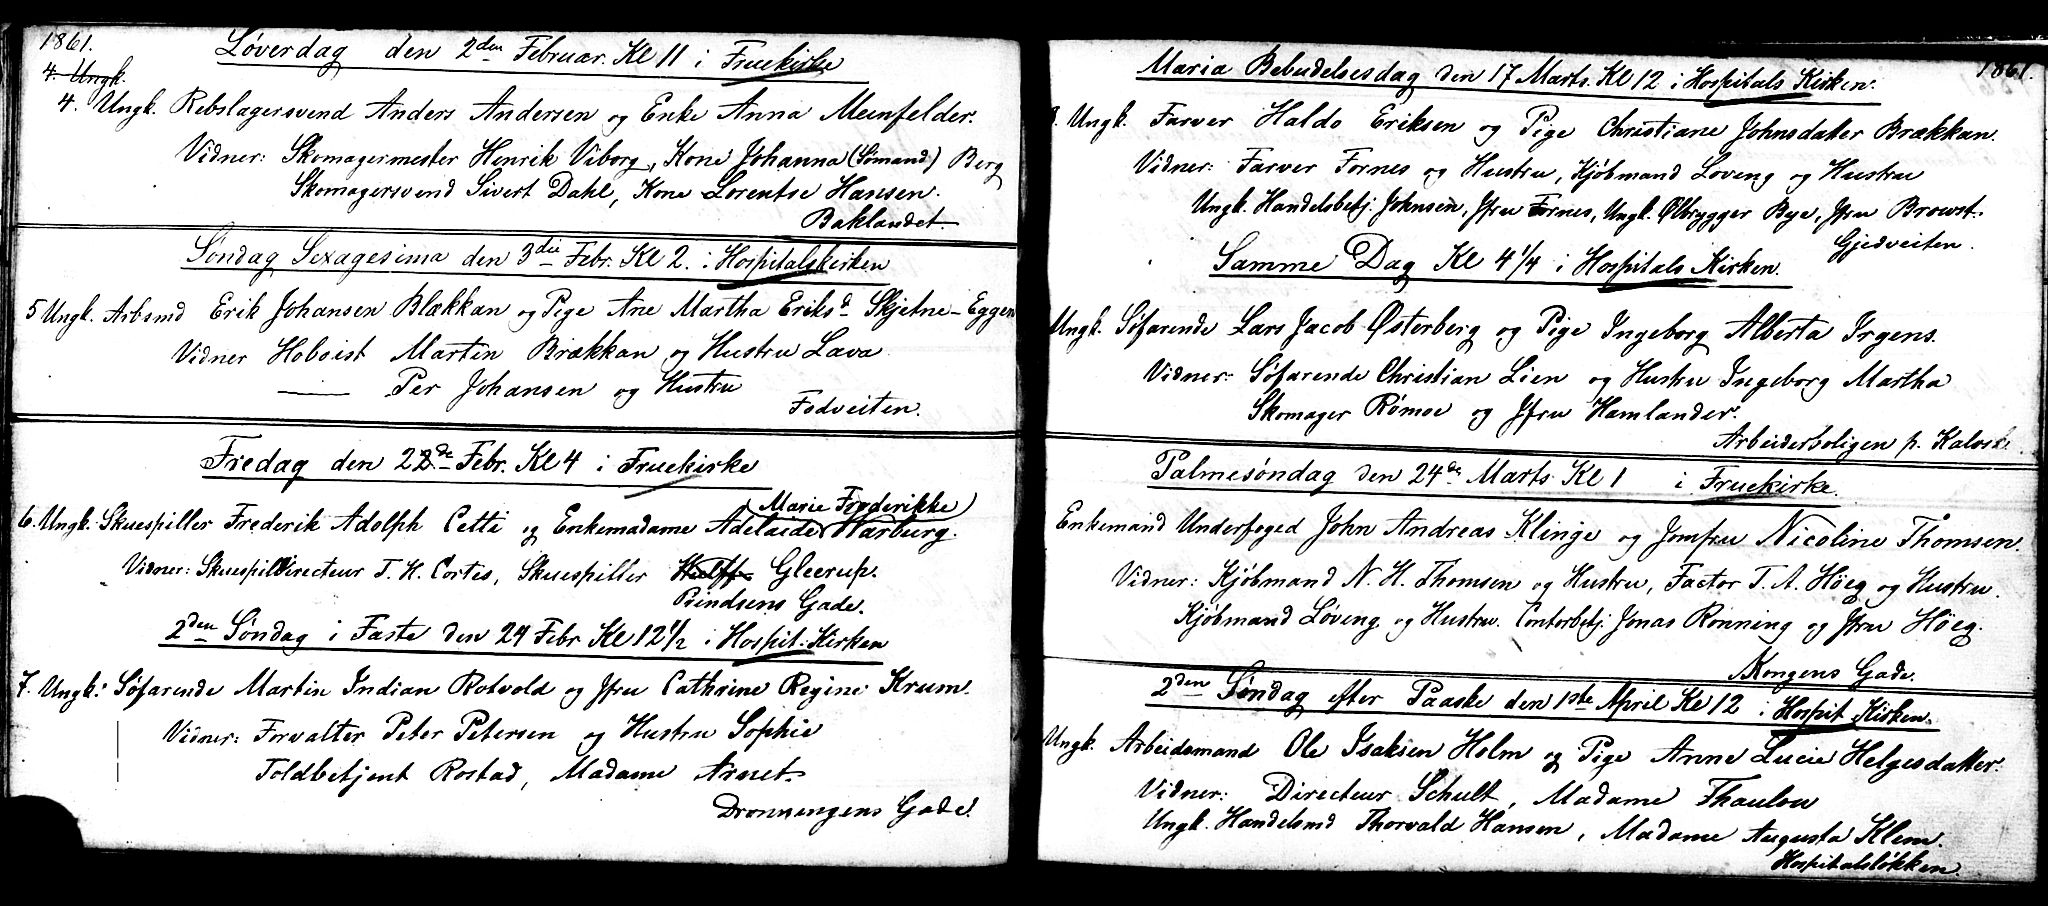 1861.
Løverdag den 2den Februar. Kl 11 i Fruekirke
4. Ungk.
4. Ungk. Rebslagersvend Anders Andersen og Enke Anna Meinfelder.
Vidner: Skomagermester Henrik Viborg, Kone Johanna (Sømand) Berg
Skomagersvend Sivert Dahl, Kone Lorentse Hansen.
Baklandet.
Søndag Sexagesima den 3die Febr. Kl 2. i Hospitalskirken
5 Ungk. Arbsmd Erik Johansen Blækkan og Pige Ane Martha Eriksd Skjetne-Eggen
Vidner Hoboist Martin Brækkan og Hustru Lava
—— Per Johansen og Hustru
Fodveiten.
Fredag den 22de Febr. Kl 4 i Fruekirke
6. Ungk: Skuespiller Frederik Adolph Cetti og Enkemadame Adelaide (Marie Frederikke) Warburg.
Vidner: Skuespildirecteur T. H. Cortes, Skuespiller Wulff Gleerup.
Prindsens Gade.
2den Søndag i Faste den 24 Febr Kl 12½ i Hospit. Kirken
7. Ungk: Søfarende Martin Indian Rotvold og Jfru Cathrine Regine Krum.
Vidner: Forvalter Peter Petersen og Hustru Sophie
Toldbetjent Rostad, Madame Arnet.
Dronningens Gade.
1861.
Maria Bebudelsesdag den 17 Marts. Kl 12 i Hospitals Kirken.
8. Ungk. Farver Haldo Eriksen og Pige Christiane Johnsdatter Brækkan.
Vidner: Farver Fornes og Hustru, Kjøbmand Løveng og Hustru
Ungk. Handelsbetj. Johnsen, Jfru Fornes, Ungk. Ølbrygger Bye, Jfru Browst.
Gjedveiten.
Samme Dag Kl 4¼ i Hospitals Kirken.
Ungk. Søfarende Lars Jacob Østerberg og Pige Ingeborg Alberta Irgens.
Vidner: Søfarende Christian Lien og Hustru Ingeborg Martha
Skomager Rømoe og Jfru Hamlander.
Arbeiderboligen p. Kalvsk
Palmesøndag den 24de Marts Kl 1 i Fruekirke.
Enkemand Underfoged John Andreas Klinge og Jomfru Nicoline Thomsen.
Vidner: Kjøbmand N. H. Thomsen og Hustru, Factor T. A. Höeg og Hustru.
Kjøbmand Løveng og Hustru. Contorbetj. Jonas Rønning og Jfru Höeg.
Kongens Gade.
2den Søndag efter Paaske den 1ste April Kl 12 i Hospit. Kirken.
Ungk. Arbeidsmand Ole Isaksen Holm og Pige Anne Lucie Helgesdatter.
Vidner: Directeur Schult, Madame Thaulow
Ungk. Handelsmd Thorvald Hansen, Madame Augusta Klem.
Hospitalsløkken.